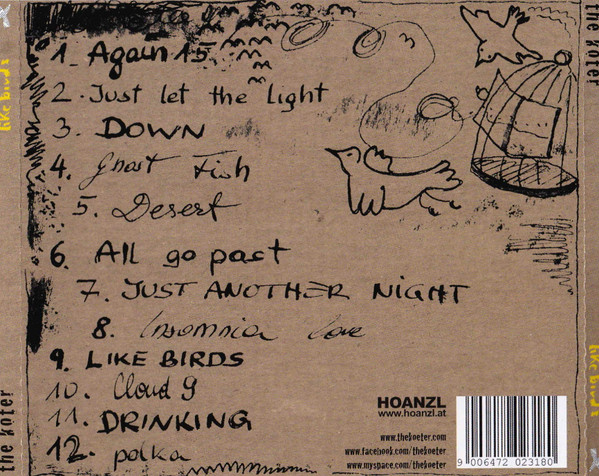 1. Again 15
2. Just let the light
3. DOWN
4. Ghost Fish
5. Desert
6. All go past
7. JUST ANOTHER NIGHT
8. Insomnia love
9. LIKE BIRDS
10. Cloud 9
11. DRINKING
12. polka
HOANZL
www.hoanzl.at
www.thekoeter.com
www.facebook.com/thekoeter
www.myspace.com/thekoeter
9 006472 023180
like birds
the köter
the köter
like birds